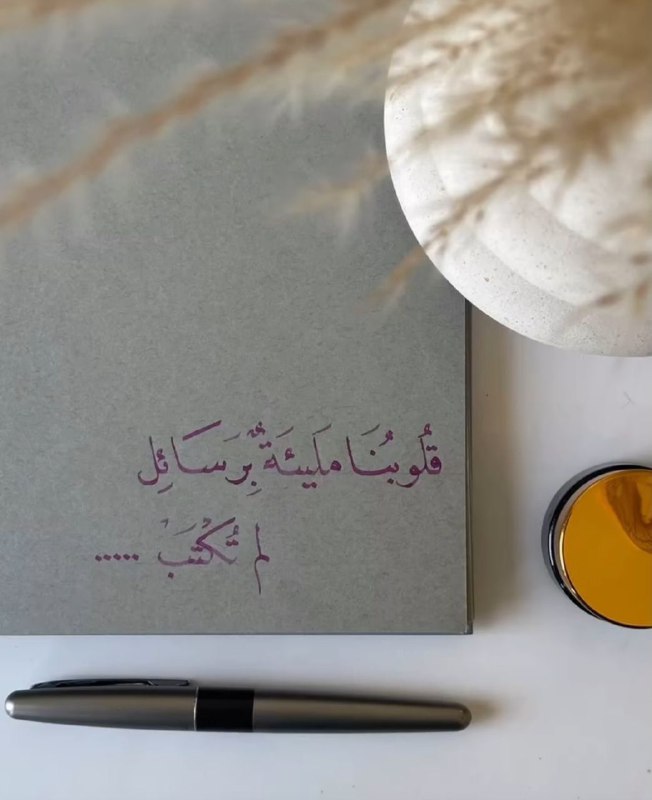 قُلُوبُنَا مَليئَةٌ بِرَسَائِل
لم تُكْتَبْ .....